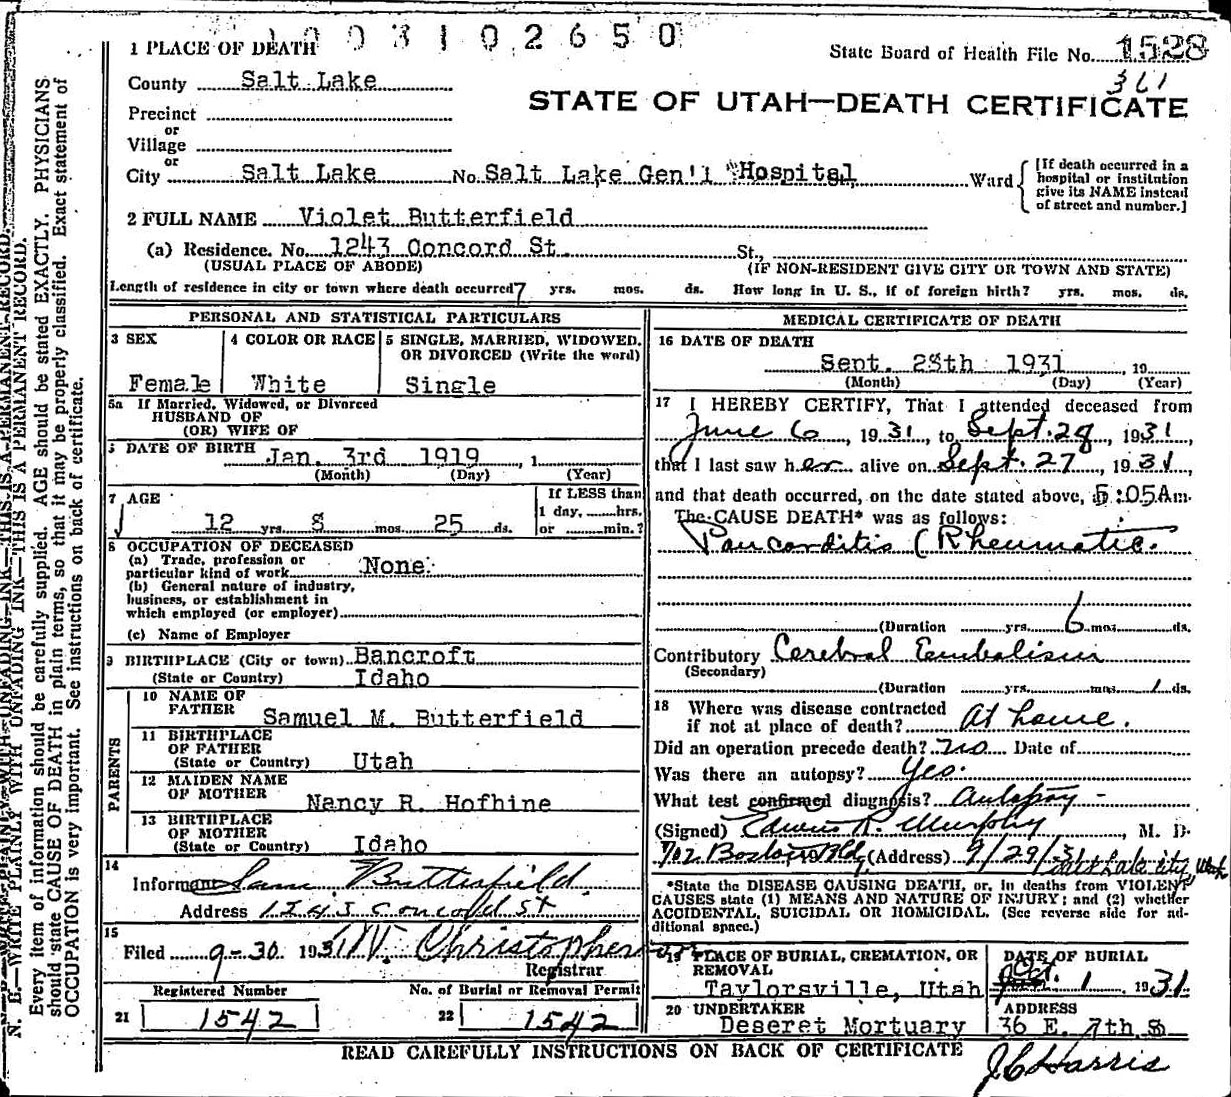 1 0 0 3 1 0 2 6 5 0
1 PLACE OF DEATH
State Board of Health File No. 1528
361
County Salt Lake
STATE OF UTAH—DEATH CERTIFICATE
Precinct
or
Village
or
City Salt Lake No. Salt Lake Gen'l Hospital Ward
[If death occurred in a hospital or institution give its NAME instead of street and number.]
2 FULL NAME Violet Butterfield
(a) Residence. No. 1243 Concord St. St.,
(USUAL PLACE OF ABODE) (IF NON-RESIDENT GIVE CITY OR TOWN AND STATE)
Length of residence in city or town where death occurred 7 yrs. mos. ds. How long in U. S., if of foreign birth? yrs. mos. ds.
PERSONAL AND STATISTICAL PARTICULARS
3 SEX
Female
4 COLOR OR RACE
White
5 SINGLE, MARRIED, WIDOWED,
OR DIVORCED (Write the word)
Single
5a If Married, Widowed, or Divorced
HUSBAND OF
(OR) WIFE OF
DATE OF BIRTH Jan. 3rd 1919, 1
(Month) (Day) (Year)
7 AGE
12 yrs. 8 mos. 25 ds.
If LESS than
1 day, hrs.
or min.?
OCCUPATION OF DECEASED
(a) Trade, profession or
particular kind of work None.
(b) General nature of industry,
business, or establishment in
which employed (or employer)
(c) Name of Employer
9 BIRTHPLACE (City or town) Bancroft
(State or Country) Idaho
PARENTS
10 NAME OF
FATHER Samuel M. Butterfield
11 BIRTHPLACE
OF FATHER
(State or Country) Utah
12 MAIDEN NAME
OF MOTHER Nancy R. Hofhine
13 BIRTHPLACE
OF MOTHER
(State or Country) Idaho
14
Informant Sam Butterfield.
Address 1243 Concord St
15
Filed 9-30 193 Christopherson
Registrar
Registered Number No. of Burial or Removal Permit
21 1542 22 1542
MEDICAL CERTIFICATE OF DEATH
16 DATE OF DEATH
Sept. 28th 1931, 19
(Month) (Day) (Year)
17 I HEREBY CERTIFY, That I attended deceased from
June 6, 1931, to Sept. 28, 1931,
that I last saw her alive on Sept. 27, 1931,
and that death occurred, on the date stated above, 5:05 A m.
The CAUSE DEATH* was as follows:
Pancarditis (Rheumatic.
(Duration yrs. 6 mos. ds.
Contributory Cerebral Embolism
(Secondary)
(Duration yrs. mos. 1 ds.
18 Where was disease contracted
if not at place of death? At home.
Did an operation precede death? no Date of
Was there an autopsy? Yes.
What test confirmed diagnosis? Autopsy -
(Signed) Edwin R. Murphy, M. D.
702 Boston Bld, (Address) 9/29/31 Salt Lake City, Utah
*State the DISEASE CAUSING DEATH, or, in deaths from VIOLENT
CAUSES state (1) MEANS AND NATURE OF INJURY; and (2) whether
ACCIDENTAL, SUICIDAL OR HOMICIDAL. (See reverse side for ad-
ditional space.)
19 PLACE OF BURIAL, CREMATION, OR
REMOVAL
Taylorsville, Utah
DATE OF BURIAL
Oct. 1 1931.
20 UNDERTAKER
Deseret Mortuary
ADDRESS
36 E. 7th S
READ CAREFULLY INSTRUCTIONS ON BACK OF CERTIFICATE
J C Harris
N. B.—WRITE PLAINLY WITH UNFADING INK—THIS IS A PERMANENT RECORD.
Every item of information should be carefully supplied. AGE should be stated EXACTLY. PHYSICIANS
should state CAUSE OF DEATH in plain terms, so that it may be properly classified. Exact statement of
OCCUPATION is very important. See instructions on back of certificate.